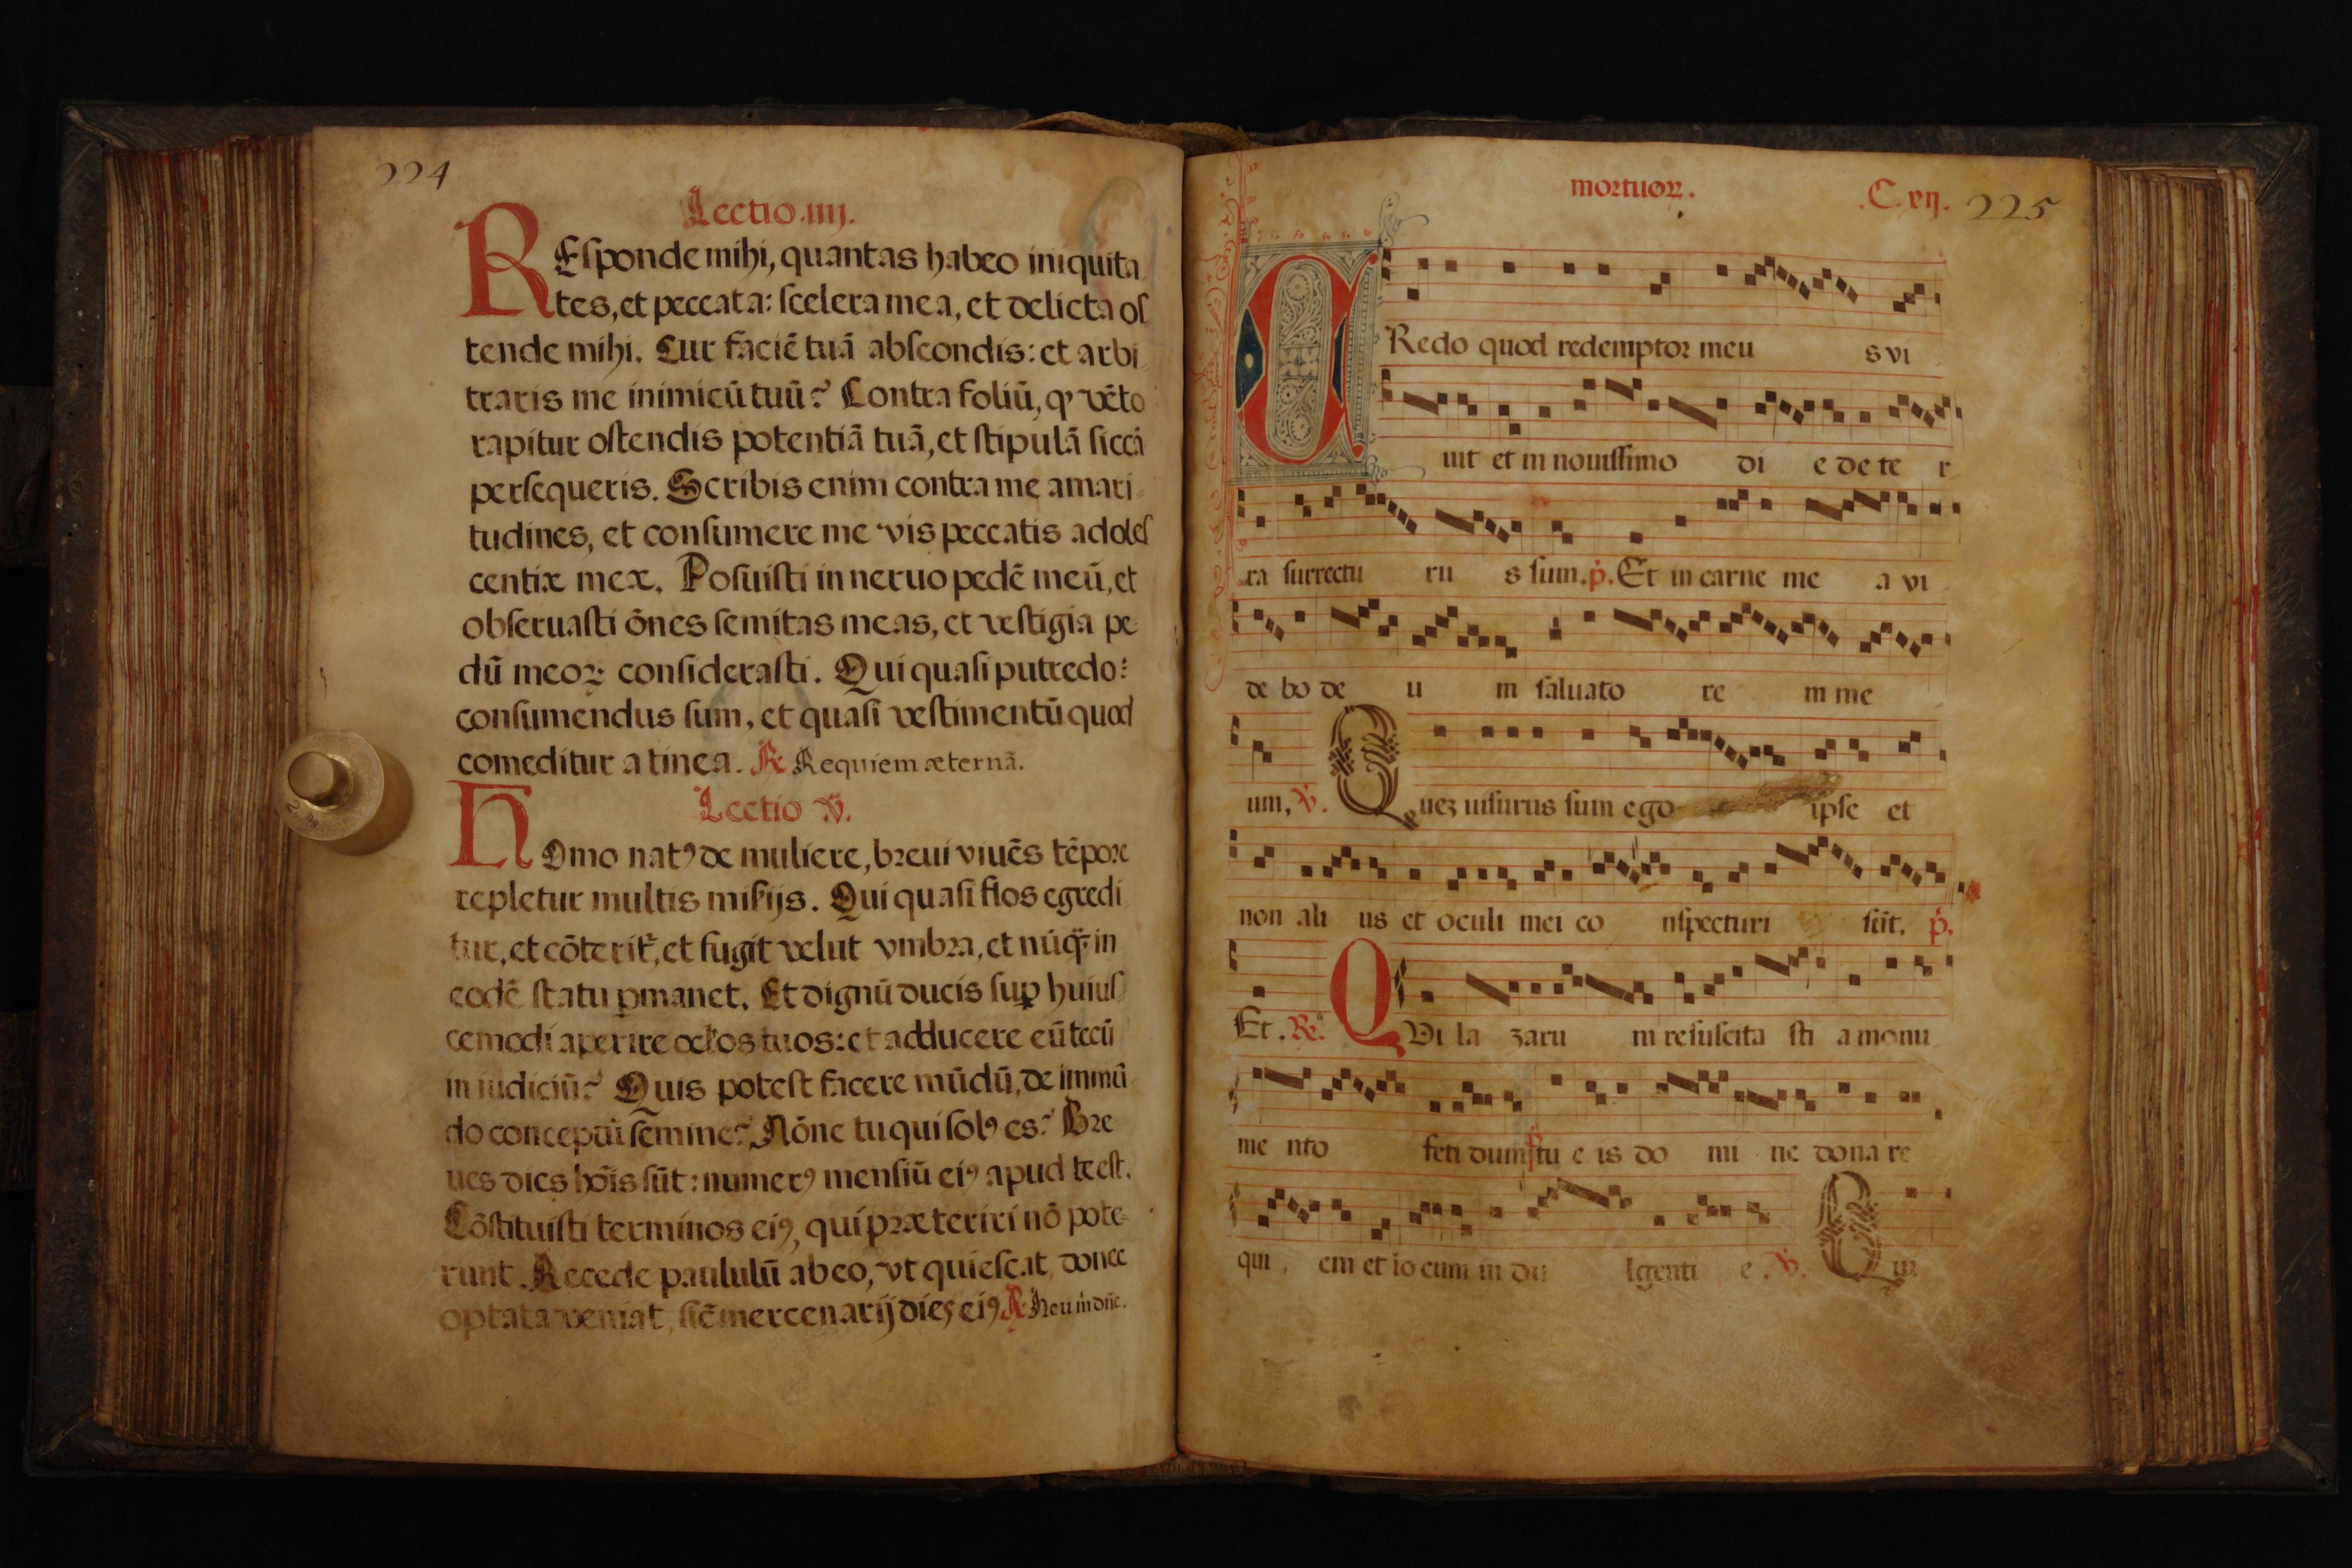 224
Lectio.iiij.
REſponde mihi, quantas habeo iniquita
tes, et peccata: ſcelera mea, et delicta oſ
tende mihi. Cur faciē tuā abſcondis: et arbi
traris me inimicū tuū? Contra foliū, qͥ vēto
rapitur oſtendis potentiā tuā, et ſtipulā ſiccā
perſequeris. Scribis enim contra me amari
tudines, et conſumere me vis peccatis adoleſ
centiæ meæ. Poſuiſti in neruo pedē meū, et
obſeruaſti ōnes ſemitas meas, et veſtigia pe
dū meoꝝ conſideraſti. Qui quaſi putredo:
conſumendus ſum, et quaſi veſtimentū quod
comeditur a tinea. ℟ Requiem æternā.
Lectio V.
HOmo natꝰ de muliere, breui viuēs tēpore
repletur multis miſijs. Qui quaſi flos egredi
tur, et cōterit̉, et fugit velut vmbra, et nūq̄ in
eodē ſtatu ꝑmanet. Et dignū ducis ſuꝑ huiuſ
cemodi aperire oc̄los tuos: et adducere eū tecū
in iudiciū? Quis poteſt facere mūdū, de immū
do conceptū ſemine? Nōne tu qui ſolꝰ es? Bre
ues dies hōis ſūt: numerꝰ menſiū eiꝰ apud te eſt.
Cōſtituiſti terminos eiꝰ, qui præteriri nō pote
runt. Recede paululū ab eo, vt quieſcat, donec
optata veniat, ſic̄ mercenarij dies eiꝰ ℟ Heu m̄ dn̄e.
mortuoꝝ. C. xij. 225
CRedo quod redemptor meu s vi
uit et in nouiſſimo di e de te r
ra ſurrectu ru s ſum. p̄. Et in carne me a vi
de bo de u m ſaluato re m me
um, ℣. Quez uiſurus ſum ego ipſe et
non ali us et oculi mei co nſpecturi ſūt. p̄.
Et. ℟. QVi la zaru m reſuſcita ſti a monu
me nto feti dum tu e is do mi ne dona re
qui em et lo cum in du lgenti e. ℣. Qui